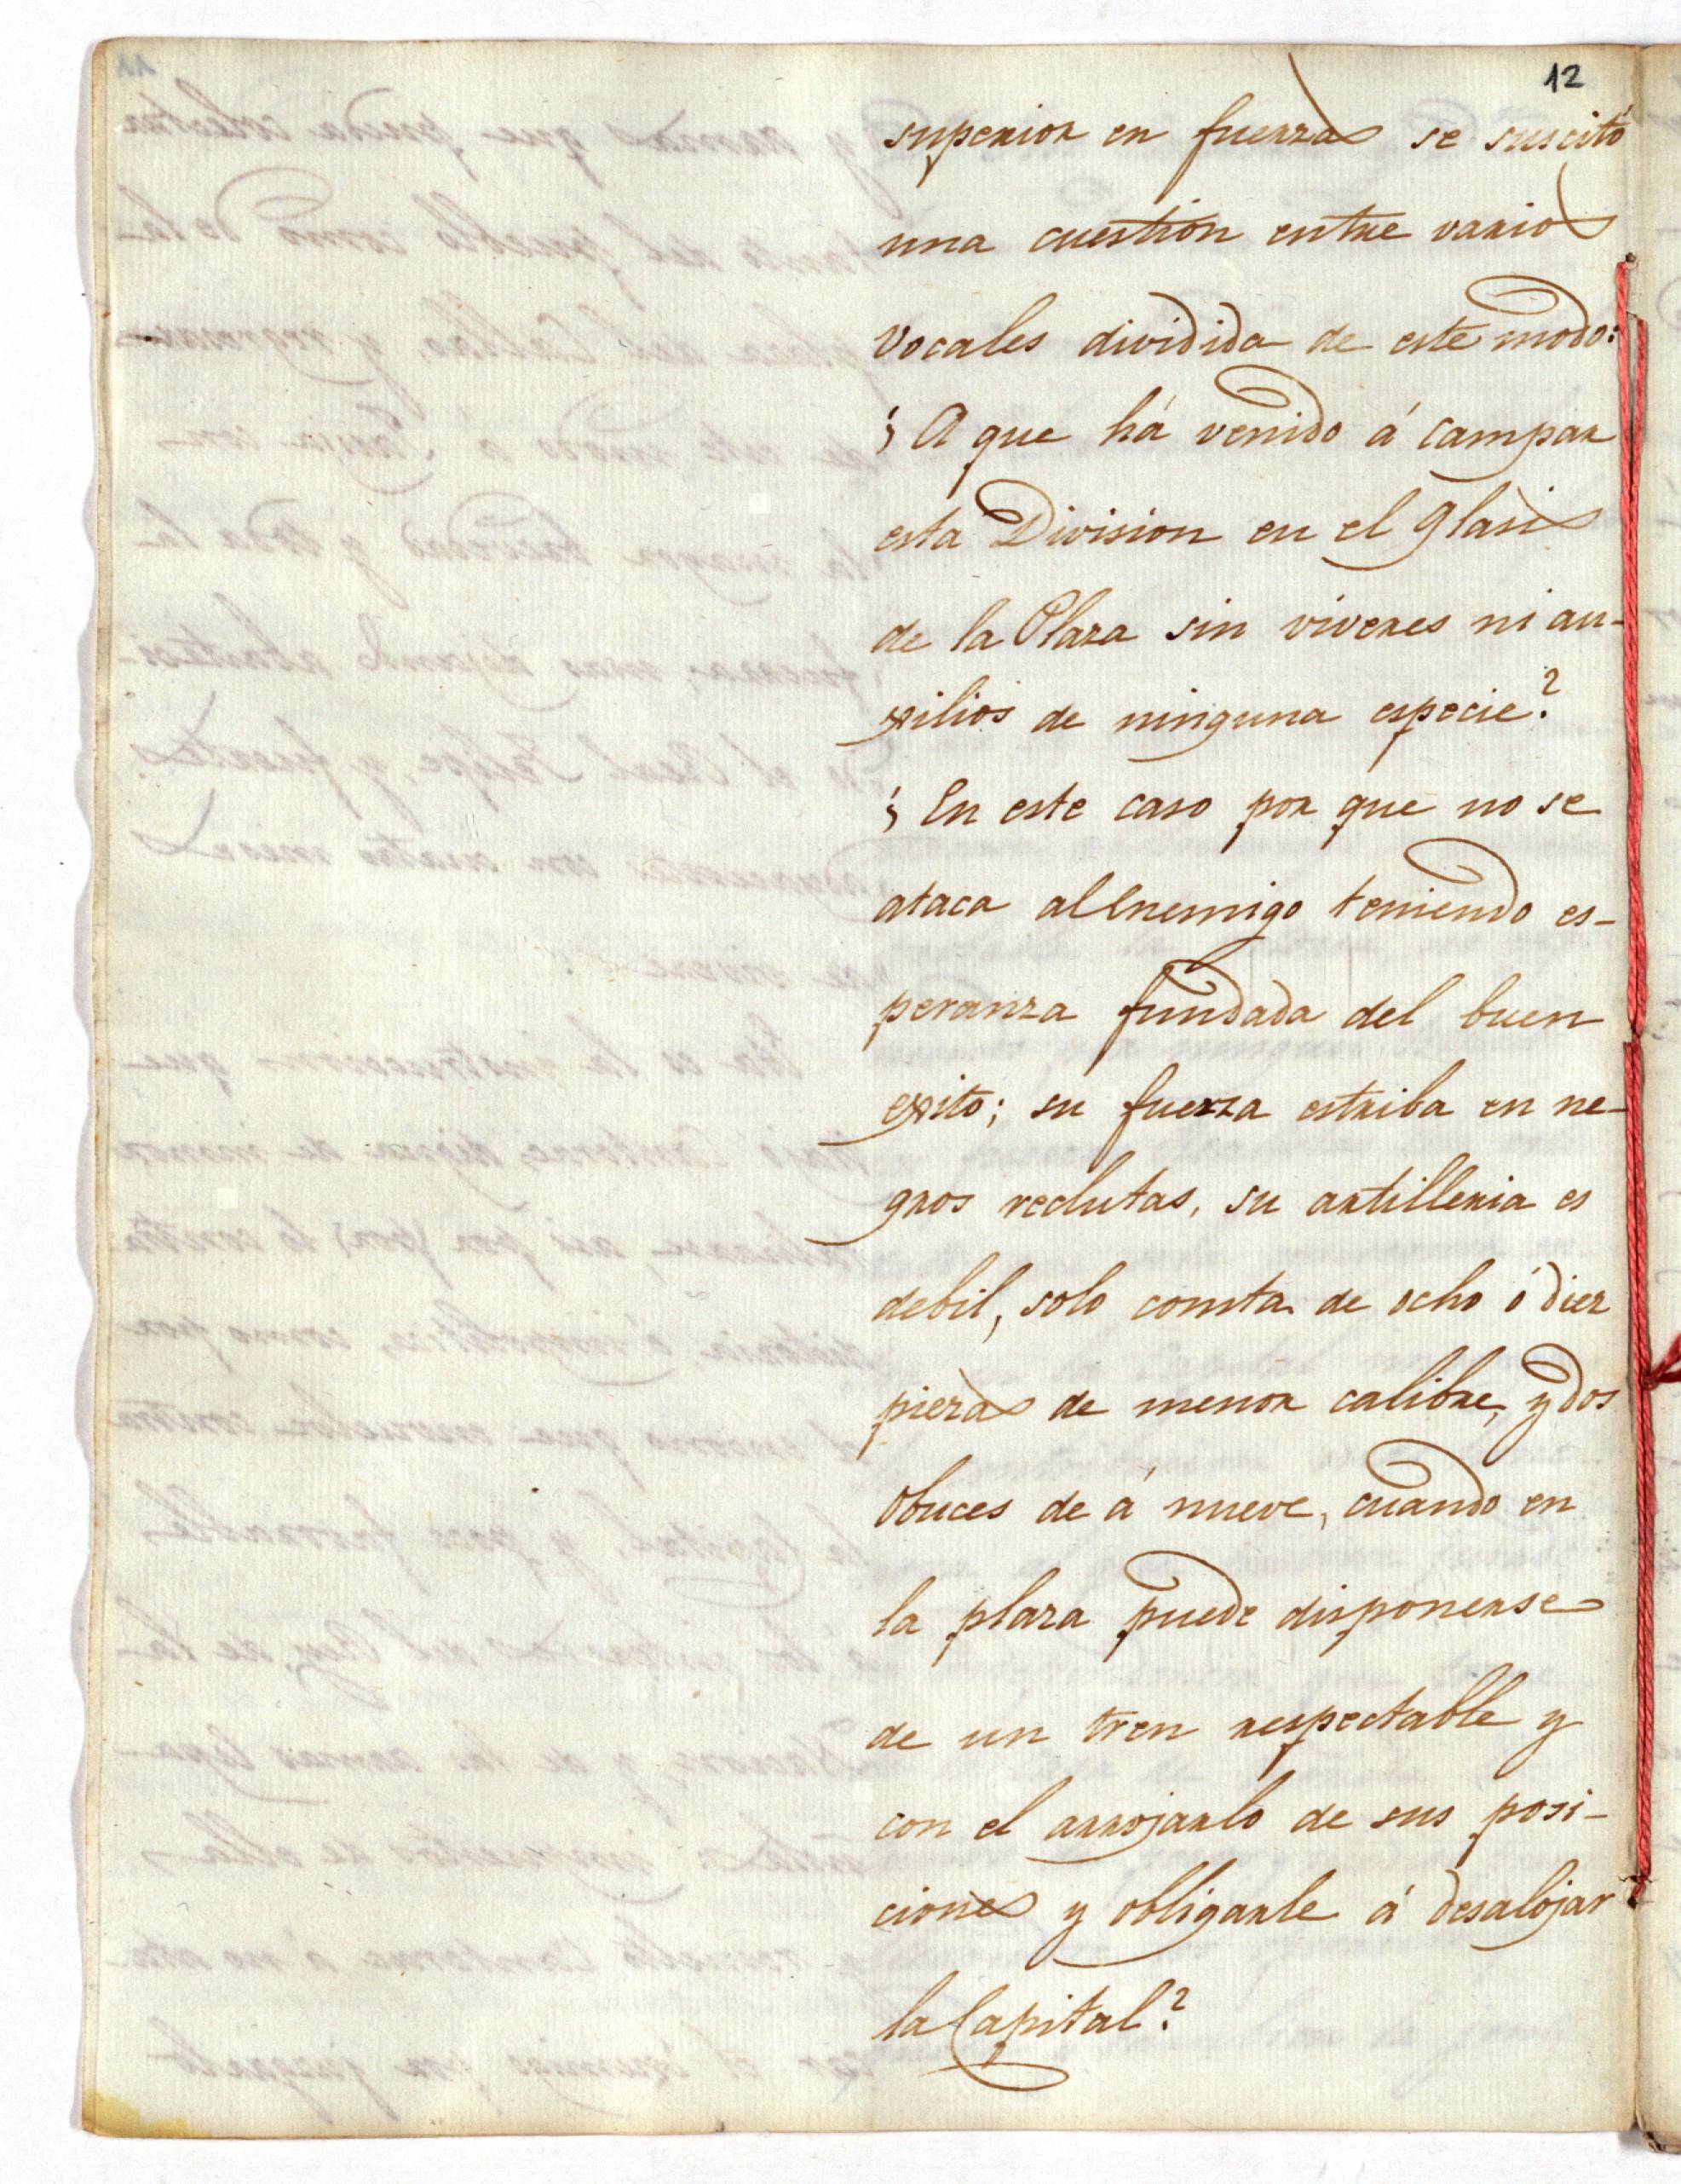 12
superior en fuerzas se suscitó
una cuestión entre varios
vocales dividida de este modo:
¿A que há venido á campar
esta Division en el Glasis
de la Plaza sin víveres ni au-
xilios de ninguna especie?
¿En este caso por que no se
ataca al Enemigo teniendo es-
peranza fundada del buen
exito; su fuerza estriba en ne-
gros reclutas, su artilleria es
debil, solo consta de ocho ó diez
piezas de menor calibre, y dos
obuces de á nueve, cuando en
la plaza puede disponerse
de un tren respectable y
con el arrojarlo de sus posi-
ciones y obligarle á desalojar
la Capital?